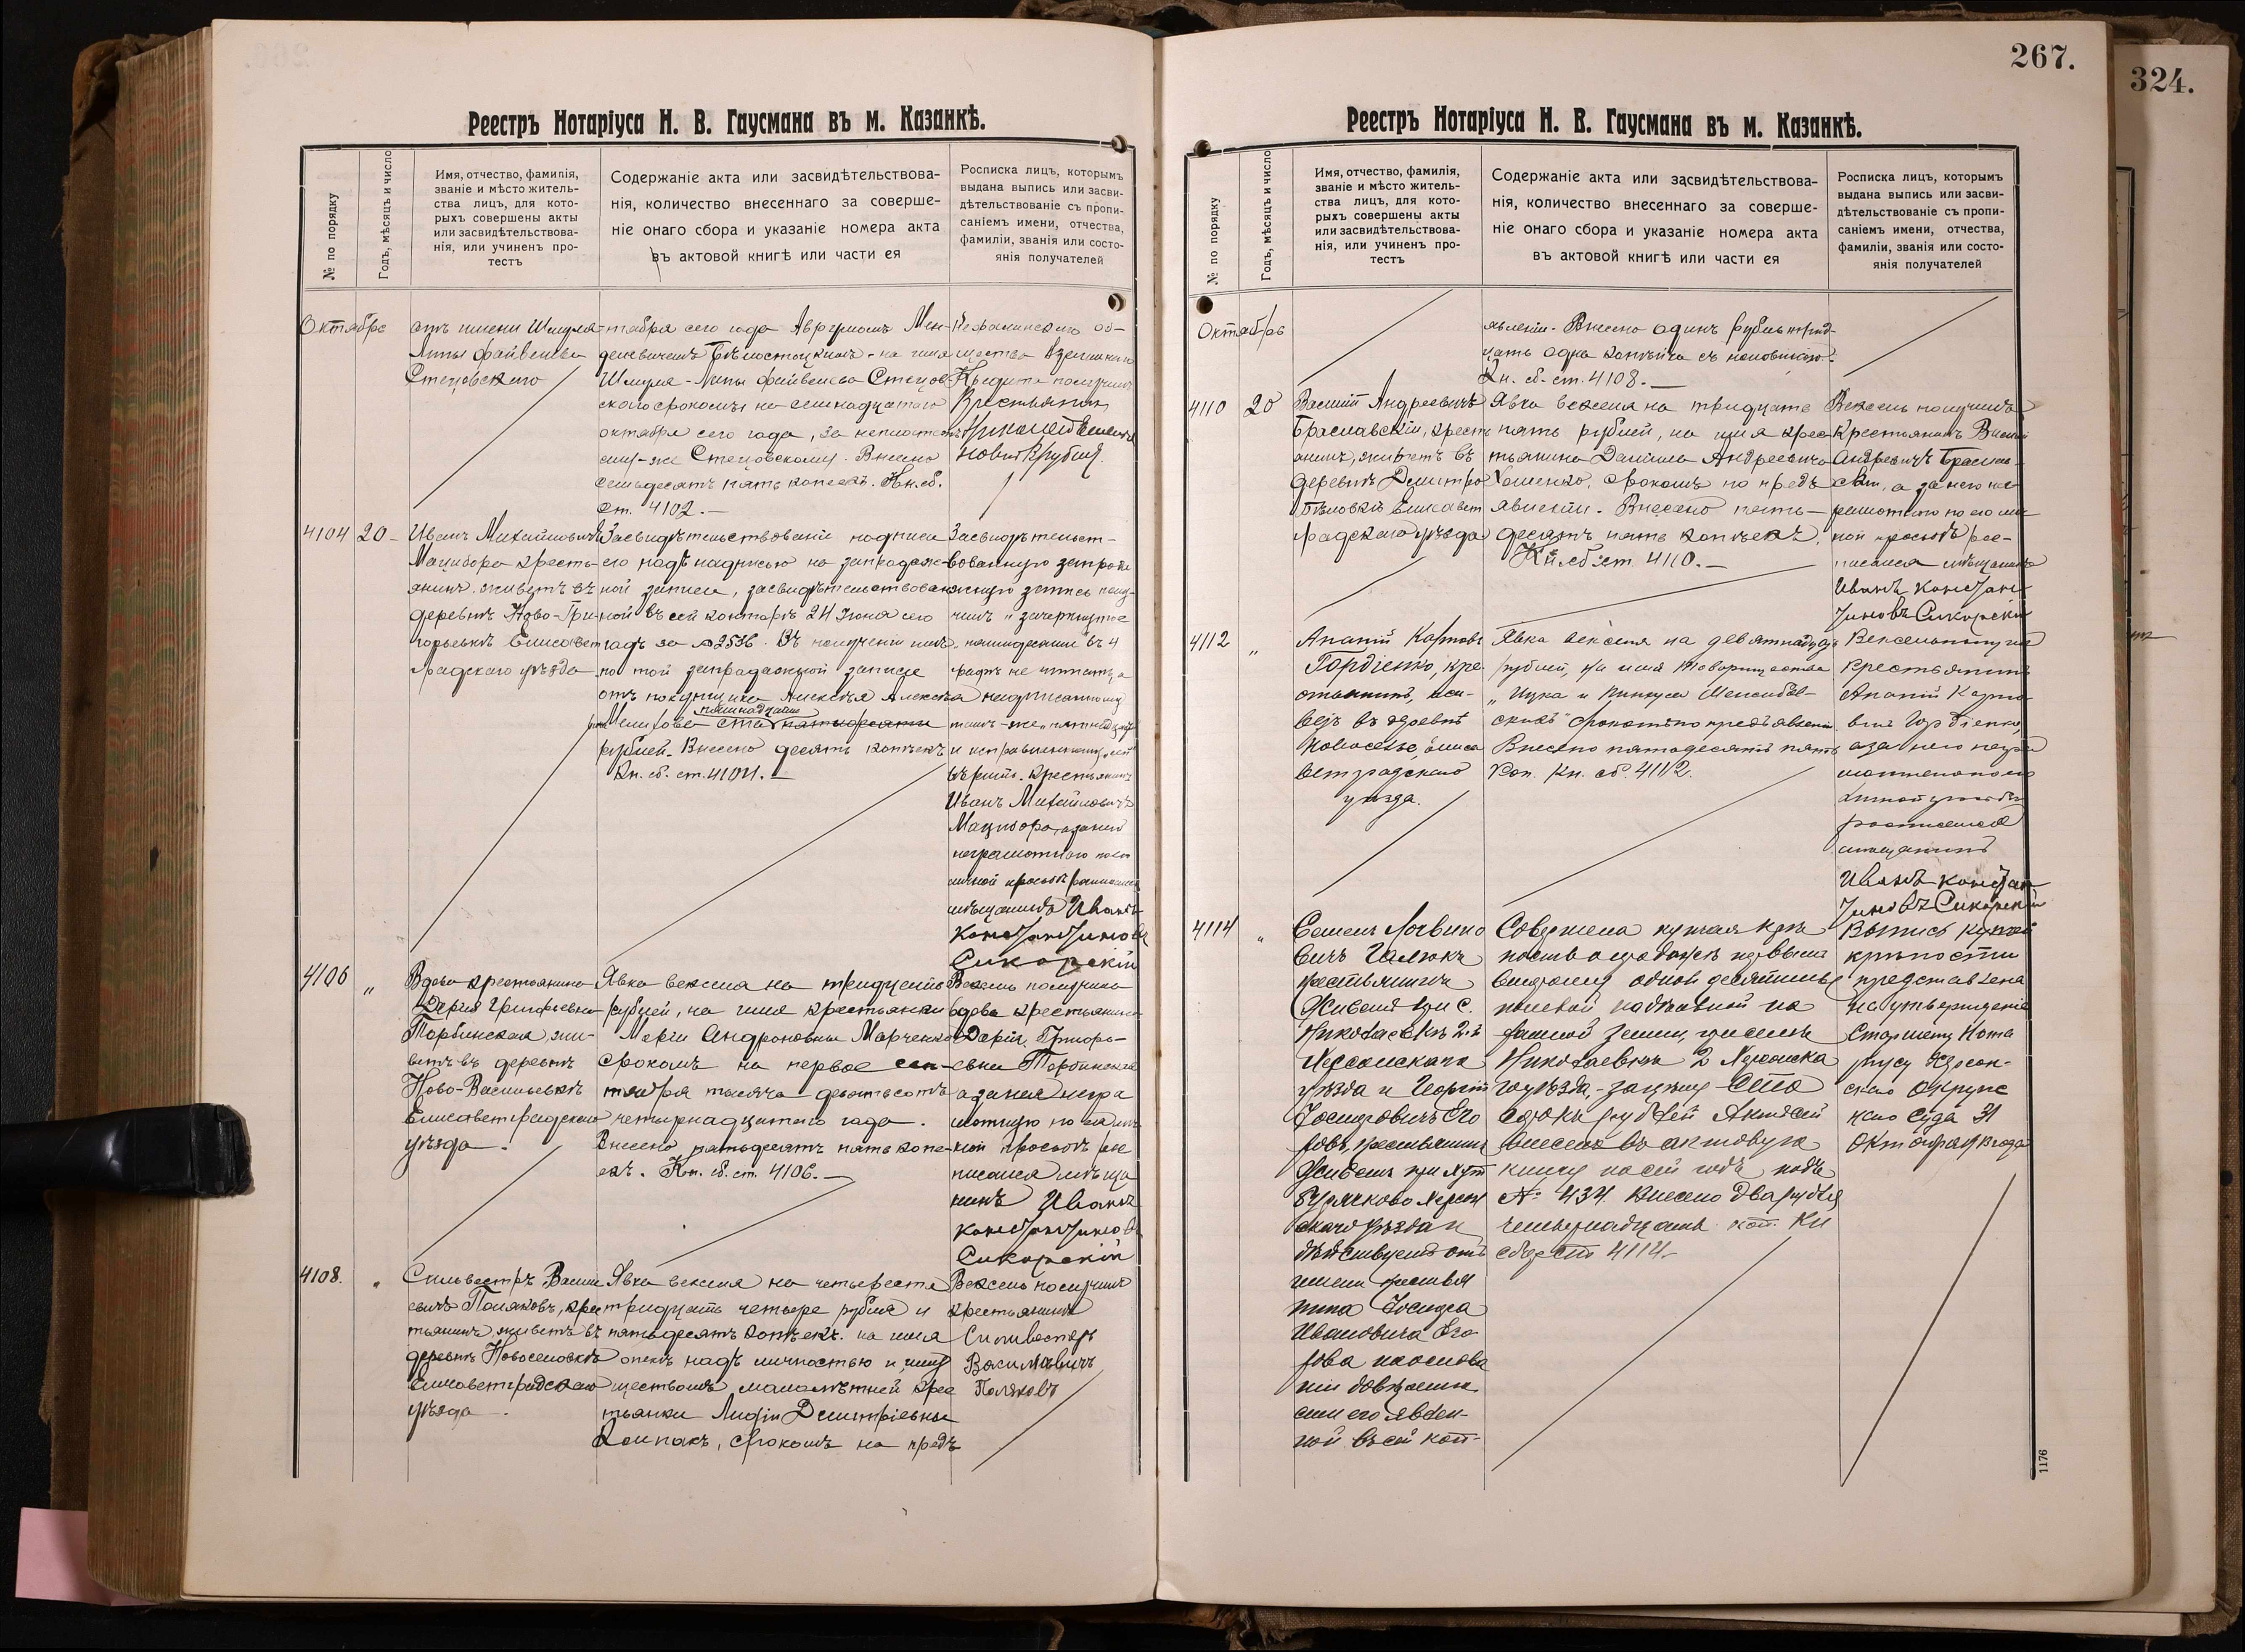 267.
324.
Реестръ Нотаріуса Н. В. Гаусмана въ м. Казанкѣ.
№ по порядку
Годъ, мѣсяцъ и число
Имя, отчество, фамилія,
званіе и мѣсто житель-
ства лицъ, для кото-
рыхъ совершены акты
или засвидѣтельствова-
нія, или учиненъ про-
тестъ
Содержаніе акта или засвидѣтельствова-
нія, количество внесеннаго за соверше-
ніе онаго сбора и указаніе номера акта
въ актовой книгѣ или части ея
Росписка лицъ, которымъ
выдана выпись или засви-
дѣтельствованіе съ пропи-
саніемъ имени, отчества,
фамиліи, званія или состо-
янія получателей
Октябрь
отъ имени Шмуля-
Липы Файвелева
Стецовского
тября сего года Аврумомъ Мен-
делевичемъ Бѣлостоцкимъ - на имя
Шмуля-Липы Файвелева Стецов
ского срокомъ на семнадцатого
октября сего года, за неплатежъ
ему-же Стецовскому. Внесено
семьдесятъ пять копеекъ. Кн. сб.
ст. 4102.—
общества Взаимнаго
Кредита получилъ
Крестьянинъ
4104
20
Иванъ Михайловичъ
Мацибора кресть-
янинъ, живетъ въ
деревнѣ Ново-Гри-
горьевкѣ Елисавет
градского уѣзда
Засвидѣтельствованіе подписи
его подъ надписью на запродаж-
ной записи, засвидѣтельствован
ной въ сей конторѣ 24 Іюня сего
года за № 2536. Въ полученіи имъ
по той запродажной записи
отъ покупщика Алексѣя Алексѣева
пятнадцати
Мелихова ста пятидесяти
рублей. Внесено десять копѣекъ
Кн. сб. ст. 4104.—
Засвидѣтельст-
вованную запрода
жную запись полу-
чилъ „зачеркнутое
„пятидесяти" въ 4
графѣ не читать, а
надписанному
тамъ-же „пятнадцати"
и исправленному
вѣрить. Крестьянинъ
Иванъ Михайловичъ
Мацибора, а за него
неграмотного по его
личной просьбѣ росписался
мѣщанинъ Иванъ
Константиновъ
Сикорскій
4106
„
Вдова крестьянина
Дарья Григорьевна
Торбинская жи-
ветъ въ деревнѣ
Ново-Васильевкѣ
Елисаветградского
уѣзда.
Явка векселя на тридцать
рублей, на имя крестьянки
Маріи Андроновны Марченко
срокомъ на первое сен-
тября тысяча девятьсотъ
четырнадцатого года.
Внесено пятьдесятъ пять копѣ-
екъ. Кн. сб. ст. 4106.—
Вексель получила
вдова крестьянина
Дарія Григорь-
евна Торбинская
а за нея негра
мотную по ея лич
ной просьбѣ рос
писался мѣща
нинъ Иванъ
Константиновъ
Сикорскій
4108.
„
Сильвестръ Васил
евичъ Поляковъ, крес
тьянинъ, живетъ въ
деревнѣ Новоселовкѣ
Елисаветградского
уѣзда.
Явка векселя на четыреста
тридцать четыре рубля и
пятьдесятъ копѣекъ. на имя
опеки надъ личностью и иму
ществомъ малолѣтней крес
тьянки Лидіи Дмитріевны
Колпакъ, срокомъ на предъ
Вексель получилъ
крестьянинъ
Сильвестръ
Васильевичъ
Поляковъ
Реестръ Нотаріуса Н. В. Гаусмана въ м. Казанкѣ.
№ по порядку
Годъ, мѣсяцъ и число
Имя, отчество, фамилія,
званіе и мѣсто житель-
ства лицъ, для кото-
рыхъ совершены акты
или засвидѣтельствова-
нія, или учиненъ про-
тестъ
Содержаніе акта или засвидѣтельствова-
нія, количество внесеннаго за соверше-
ніе онаго сбора и указаніе номера акта
въ актовой книгѣ или части ея
Росписка лицъ, которымъ
выдана выпись или засви-
дѣтельствованіе съ пропи-
саніемъ имени, отчества,
фамиліи, званія или состо-
янія получателей
Октябрь
явленіи. Внесено одинъ рубль трид-
цать одна копѣйка съ половиною.
Кн. сб. ст. 4108.—
4110
20
Василій Андреевичъ
Браславскій, кресть
янинъ, живетъ въ
деревнѣ Дмитро
Бѣловкѣ Елисавет
градского уѣзда
Явка векселя на тридцать
пять рублей, на имя крес
тьянина Даніила Андреевича
Хоменко, срокомъ по предъ
явленіи. Внесено пять-
десятъ пять копѣекъ.
Кн. сб. ст. 4110.—
Вексель получилъ
Крестьянинъ Василій
Андреевичъ Браслав-
скій, а за него не
грамотного по его лич
ной просьбѣ рос-
писался мѣщанинъ
Иванъ Констан-
тиновъ Сикорскій
4112
„
Ананій Карповъ
Гордіенко, кре
стьянинъ, жи-
ветъ въ деревнѣ
Новоселье, Елиса
ветградского
уѣзда.
Явка векселя на девятнадцать
рублей, на имя Товарищества
„Ицка и Пинкуса
срокомъ по предъявленіи
Внесено пятьдесятъ пять
коп. Кн. сб. 4112.
Вексель получилъ
крестьянинъ
Ананій Карпо
вичъ Гордіенко,
а за него негра
мотнаго по его
личной просьбѣ
росписался
мѣщанинъ
Иванъ Констан
тиновъ Сикорскій
4114
„
Семенъ Логвино
вичъ Галюкъ
крестьянинъ
Живетъ при с.
Николаевкѣ 2-й
Херсонскаго
уѣзда и Георгій
Іосифовичъ Его
ровъ, крестьянинъ
Живетъ при хут
Бурячково Херсон
скаго уѣзда и
дѣйствуетъ отъ
имени крестья
нина Іосифа
Ивановича Его
рова на основа
ніи довѣренно
сти его явлен-
ной въ сей кон-
Совершена купчая крѣ
пость о продажѣ первымъ
второму одной десятины
полевой надѣльной па
хатной земли, при селѣ
Николаевкѣ 2 Херсонска
го уѣзда,- за цѣну Сто
сорокъ рублей Актъ сей
внесенъ въ актовую
книгу на сей годъ подъ
№ 434. Внесено два рубля
четырнадцать коп. Кн
сбор. ст 4114
Выпись купчей
крѣпости
представлена
на утвержденіе
Старшему Нота
ріусу Херсон-
скаго Окруж
наго Суда 31
Октября 1913 года
1176